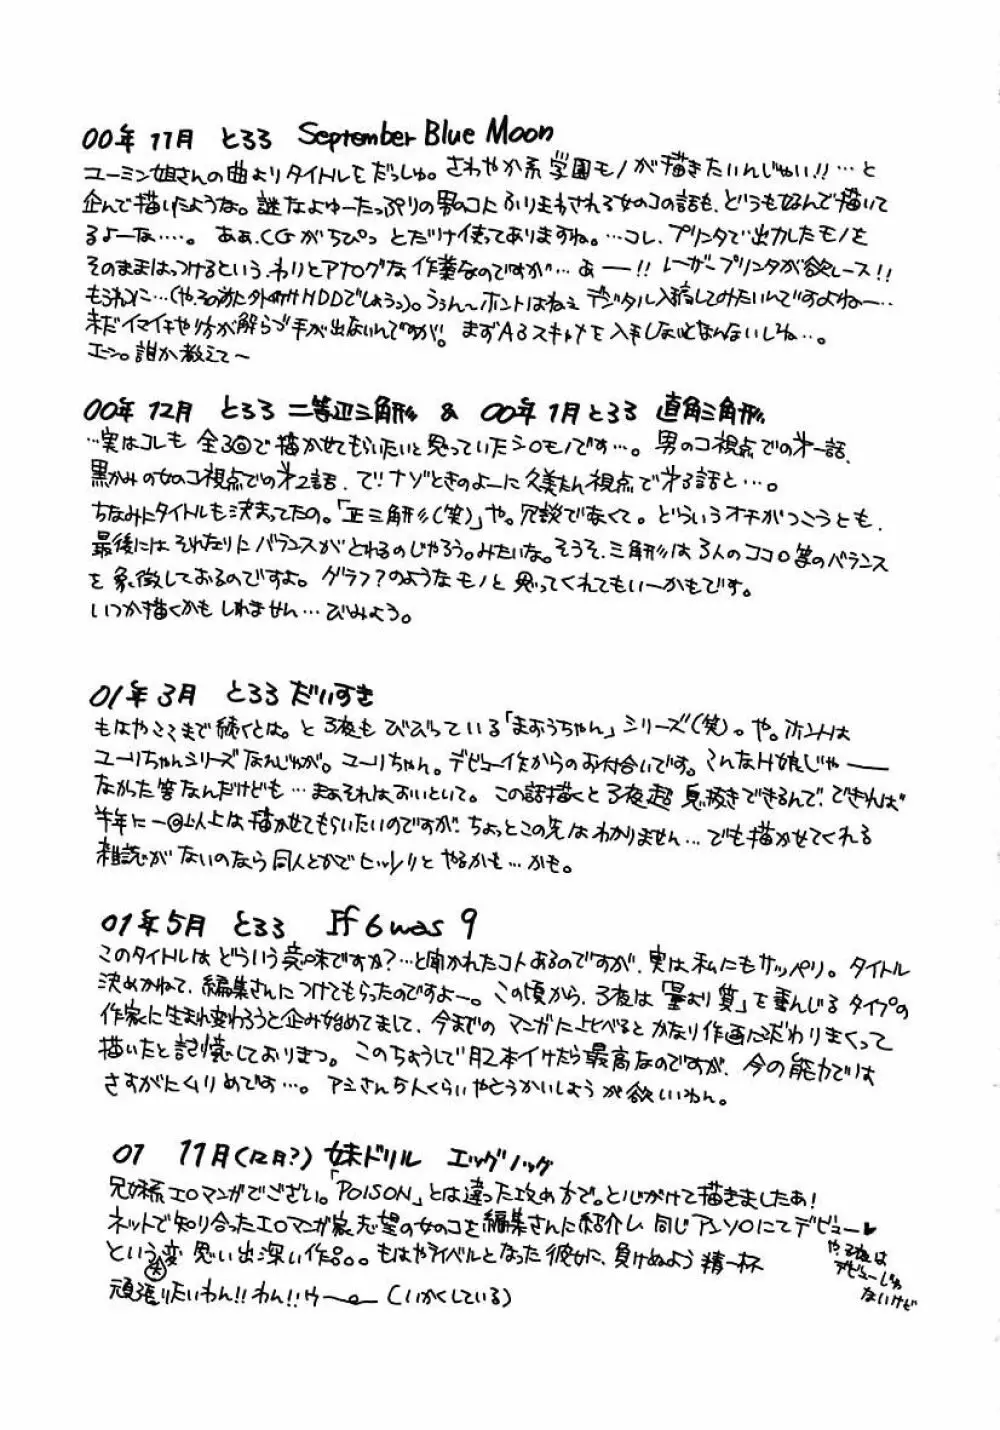 00年11月 とろろ September Blue Moon
ユーミン姐さんの曲よりタイトルをだっしゅ。さわやか系学園モノが描きたいんじゃい!!…と
企んで描いたような。謎なよゆーたっぷりの男のコにふりまわされる女のコの話も、どうも好んで描いて
るよーな…。ああ、CGがちぴっとだけ使ってありますね。…コレ、プリンタで出力したモノを
そのままはっつけるという、わりとアナログな作業なのですが…あー!!レーザープリンタが欲しース!!
もうれつに…(や、その前に外付けHDDでしょうっ)。ううん〜ホントはねぇデジタル入稿してみたいんですよねー…
未だイマイチやり方が解らず手が出ないんですが。まずA3スキャナを入手しないとなんないしね…。
エーン。誰か教えて〜
00年12月 とろろ 二等辺三角形 & 00年1月とろろ 直角三角形
…実はコレも全3回で描かせてもらいたいと思っていたシロモノです…。男のコ視点での才一話、
黒かみの女のコ視点での才2話、で!!ナゾときのよーに久美たん視点で才3話と…。
ちなみにタイトルも決まってたの。「正三角形(笑)」や。冗談でなくて。どういうオチがつこうとも、
最後にはそれなりにバランスがとれるのじゃろう。みたいな。そうそ、三角形は3人のココロ等のバランス
を象徴しておるのですよ。グラフ?のようなモノと思ってくれてもいーかもです。
いつか描くかもしれません…びみょう。
01年3月 とろろ だいすき
もはやここまで続くとは。と3夜もびびっている「まおうちゃん」シリーズ(笑)。や。ホントは
ユーリちゃんシリーズなんじゃが。ユーリちゃん。デビュー作からのお付合いです。こんなH娘じゃー
なかった筈なんだけども…まぁそれはおいといて。この話描くと3夜超息抜きできるんで、できれば
半年に一回以上は描かせてもらいたいのですが、ちょっとこの先はわかりません…でも描かせてくれる
雑誌がないのなら同人とかでヒッソリとやるかも…かも。
01年5月 とろろ If 6 was 9
このタイトルはどういう意味ですか?…と聞かれたコトあるのですが、実は私にもサッパリ。タイトル
決めかねて、編集さんにつけてもらったのですよー。この頃から、3夜は「量より質」を重んじるタイプの
作家に生まれ変わろうと企み始めてまして、今までのマンガに比べるとかなり作画にこだわりまくって
描いたと記憶しておりまっ。このちょうしで月2本イけたら最高なのですが、今の能力では
さすがにムリめです…。アシさん5人くらいやとうかいしょうが欲しいわん。
01 11月(12月?) 妹ドリル エッグノッグ
兄妹系エロマンガでござい。「POISON」とは違った攻め方で。と心がけて描きましたぁ!
ネットで知り合ったエロマンガ家志望の女のコを編集さんに紹介し、同じアンソロにてデビュー♥
という変(笑)思い出深い作品。。もはやライバルとなった彼女に、負けぬよう精一杯
頑張りたいわん!!わん!!ウー(いかくしている)
や、3夜は
デビューじゃ
ないけど